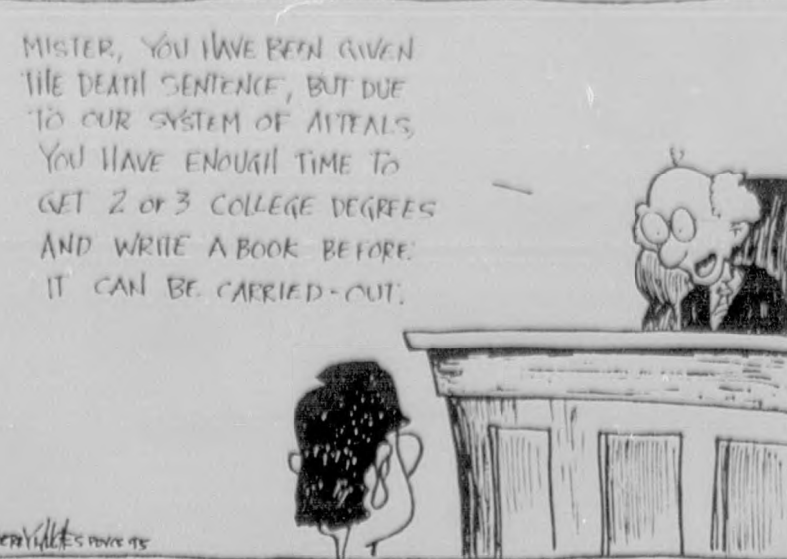 MISTER, YOU HAVE BEEN GIVEN
THE DEATH SENTENCE, BUT DUE
TO OUR SYSTEM OF APPEALS,
YOU HAVE ENOUGH TIME TO
GET 2 or 3 COLLEGE DEGREES
AND WRITE A BOOK BEFORE
IT CAN BE CARRIED-OUT.